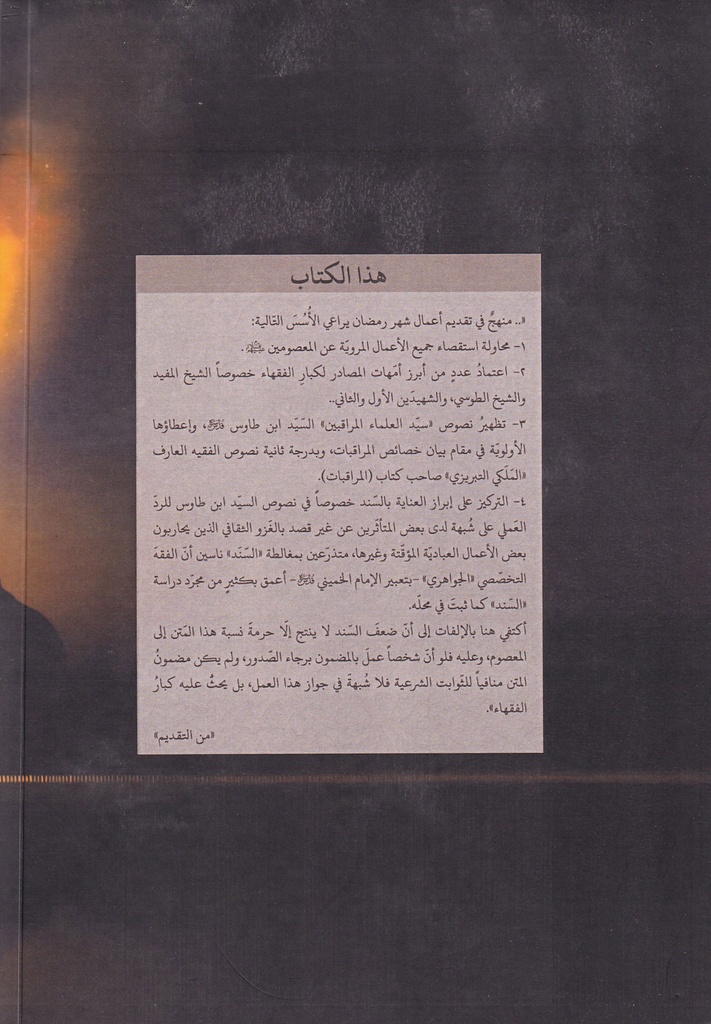 هذا الكتاب
«.. منهجٌ في تقديم أعمال شهر رمضان يراعي الأُسُسَ التّالية:
١- محاولة استقصاء جميع الأعمال المرويّة عن المعصومين ﷺ.
٢- اعتمادُ عددٍ من أبرز أمّهات المصادر لكبارِ الفقهاء خصوصاً الشيخ المفيد
والشيخ الطوسي، والشهيدَين الأول والثاني..
٣- تظهيرُ نصوص «سيّد العلماء المراقبين» السّيّد ابن طاوس قدّس سرّه، وإعطاؤها
الأولويّة في مقام بيان خصائص المراقبات، وبدرجة ثانية نصوص الفقيه العارف
«المَلَكي التبريزي» صاحب كتاب (المراقبات).
٤- التركيز على إبراز العناية بالسّند خصوصاً في نصوص السيّد ابن طاوس للردّ
العَملي على شُبهة لدى بعض المتأثّرين عن غير قصد بالغَزو الثقافي الذين يحاربون
بعض الأعمال العباديّة المؤقّتة وغيرها، متذرّعين بمغالطة «السّنَد» ناسين أنّ الفقهَ
التخصّصي «الجواهري» -بتعبير الإمام الخميني قدّس سرّه- أعمق بكثيرٍ من مجرّد دراسة
«السّند» كما ثبتَ في محلّه.
أكتفي هنا بالإلفات إلى أنّ ضعفَ السّند لا ينتج إلّا حرمةَ نسبة هذا المَتن إلى
المعصوم، وعليه فلو أنّ شخصاً عملَ بالمضمون برجاء الصّدور، ولم يكن مضمونُ
المتن منافياً للثّوابت الشرعية فلا شُبهةَ في جواز هذا العمل، بل يحثُّ عليه كبارُ
الفقهاء».
«من التقديم»